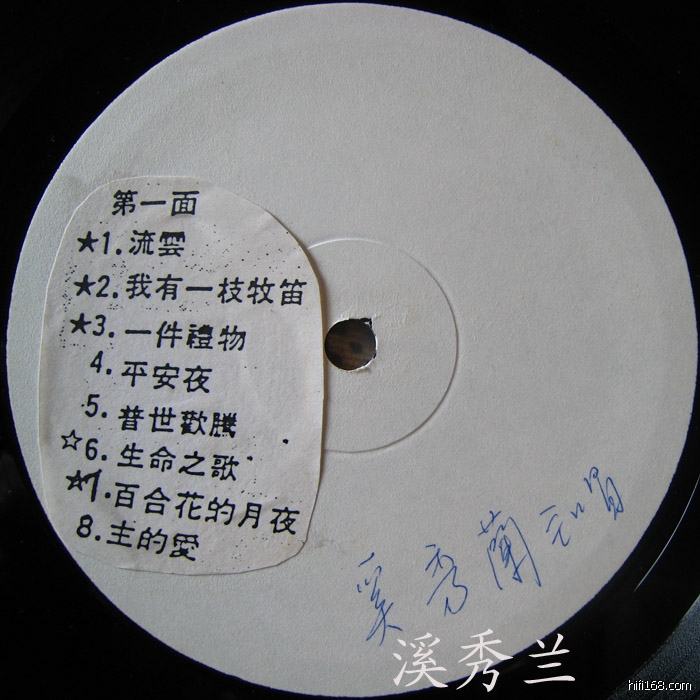 第一面
★1.流雲
★2.我有一枝牧笛
★3.一件禮物
4.平安夜
5.普世歡騰
☆6.生命之歌
☆7.百合花的月夜
8.主的愛
奚秀蘭
溪秀兰
hifi168.com